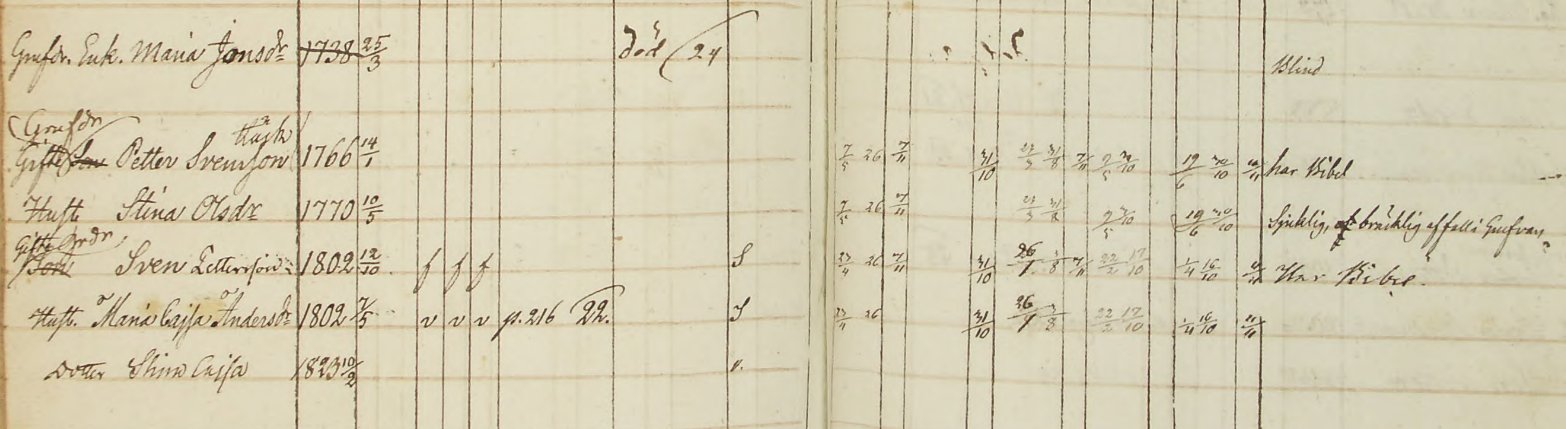 Grufdr. Enk. Maria Jonsdr 1738 25/3 död 24 Blind
Grufdr
Gifte Son Petter Svensson 1766 14/1 7/5 26 7/11 31/10 31/8 7/11 19/6 30/10 har Bibel
Hust. Stina Olsdr 1770 10/5 7/5 26 7/11 31/8 19/6 30/10 Sjuklig, bräcklig af fall i Grufvan
Gifte Grdr
Son Sven Pettersson 1802 12/10 f f f S 26 7/11 31/10 26/1 7/11 22/2 17/10 1/4 16/10 Har Bibel.
Hust. Maria Cajsa Andersdr 1802 7/5 v v v p. 216 22. S 26 31/10 26/1 22/2 17/10 1/4 16/10
Dotter Stina Cajsa 1823 10/2 v.